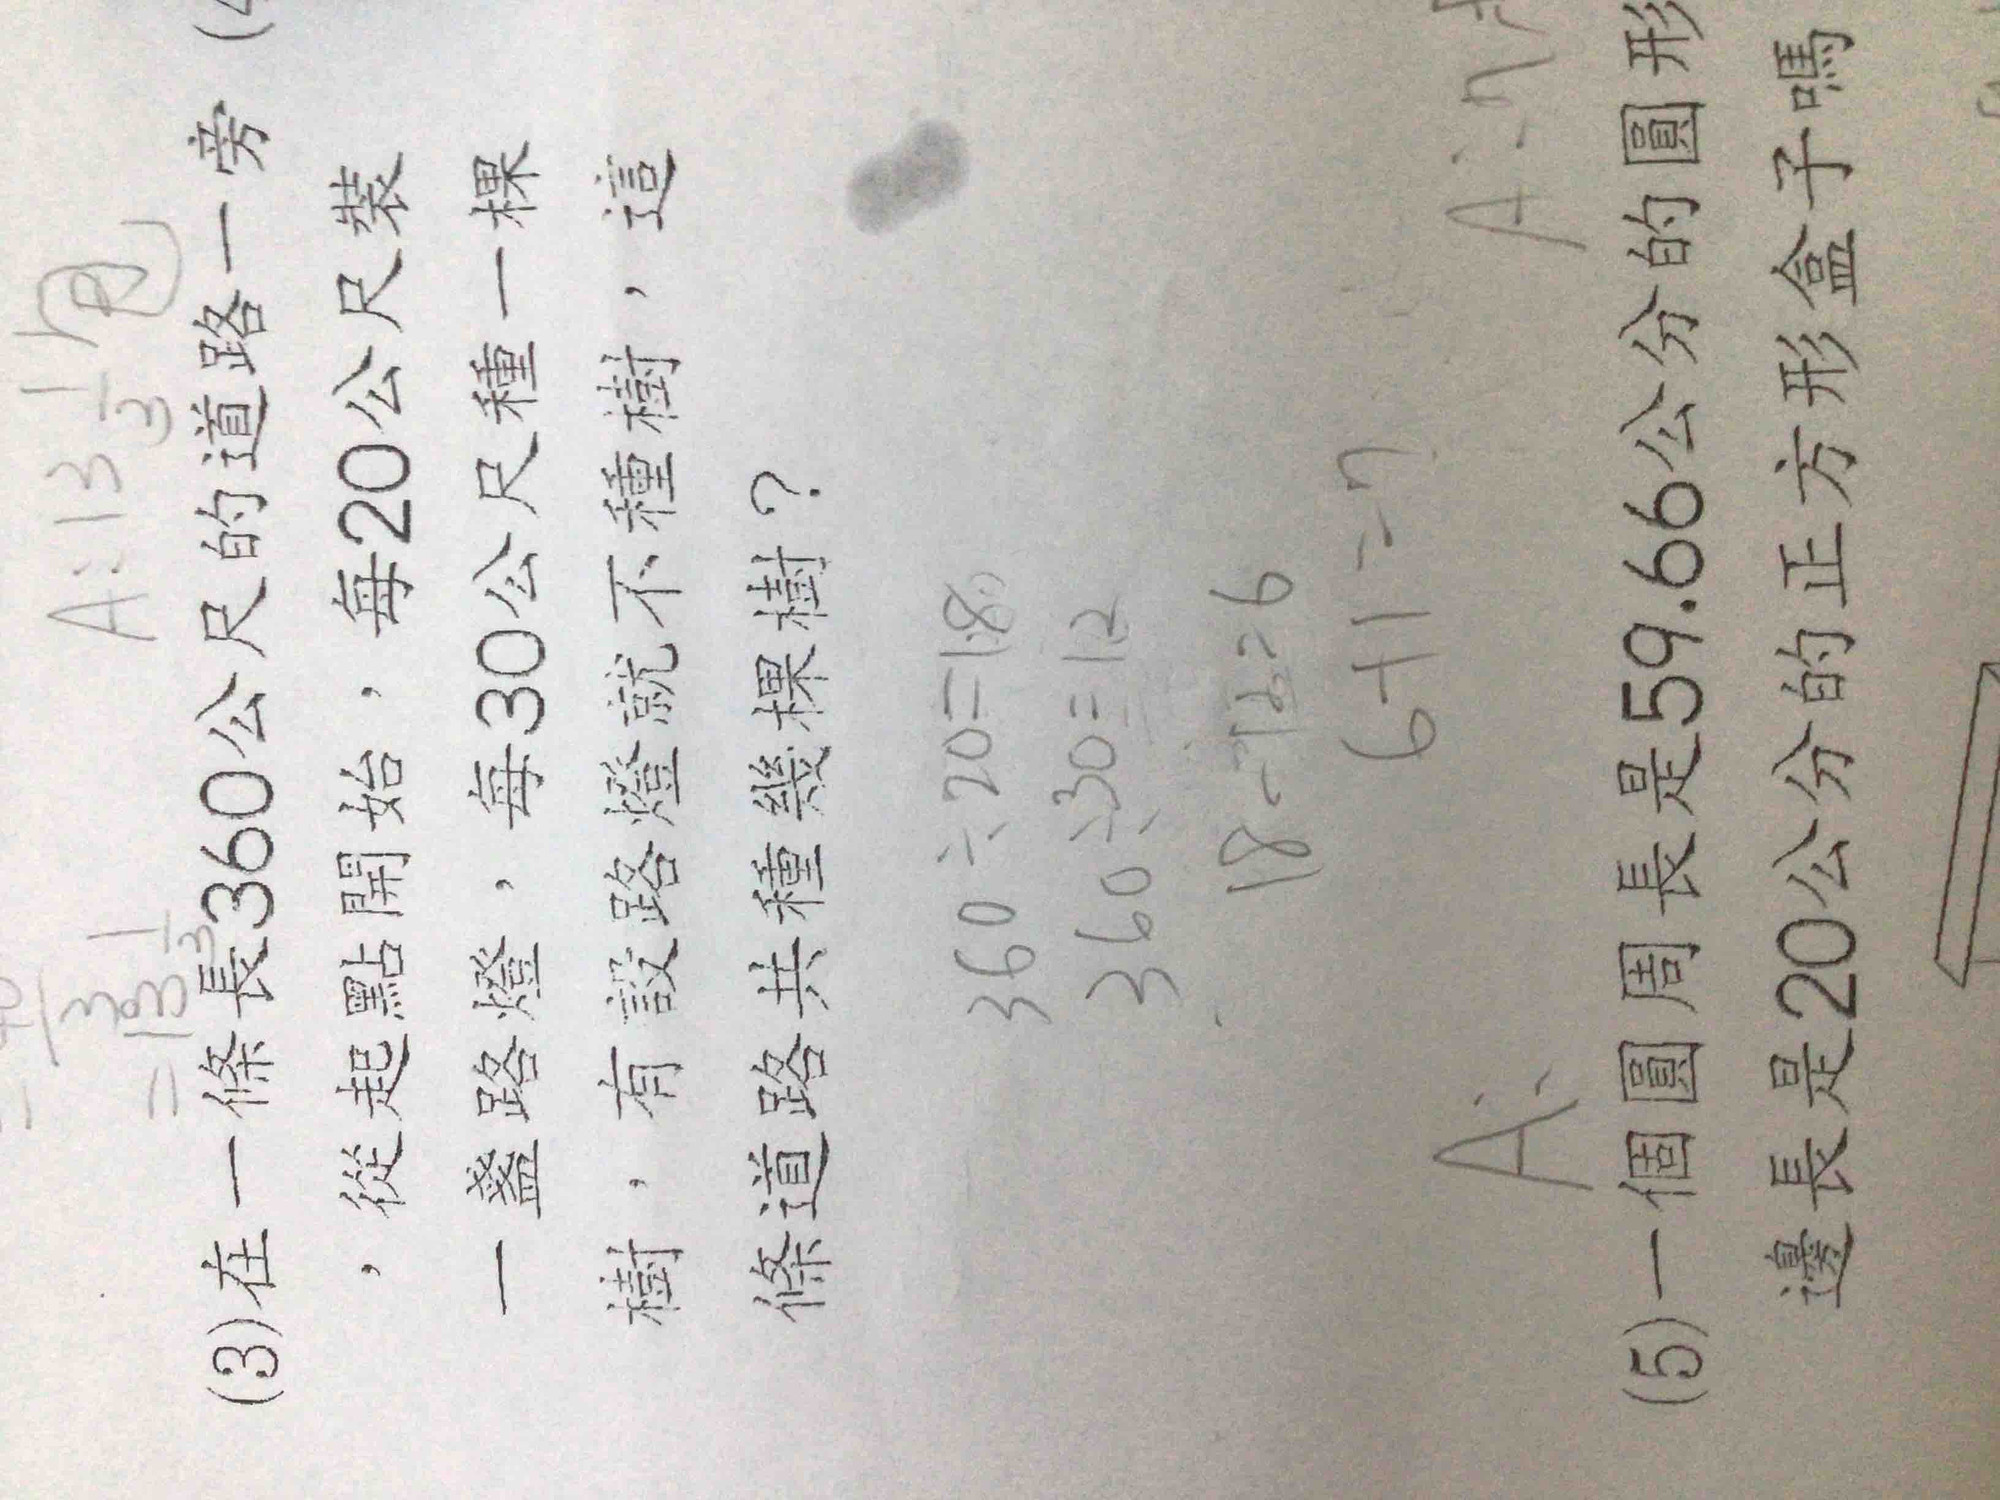 A:13 1/3 
=13 1/3
(3)在一條長360公尺的道路一旁
，從起點開始，每20公尺裝
一盞路燈，每30公尺種一棵
樹，有設路燈就不種樹，這
條道路共種幾棵樹？
360÷20=18
360÷30=12
18-12=6
6+1=7
A: A:7
(5)一個圓周長是59.66公分的圓形
邊長是20公分的正方形盒子嗎